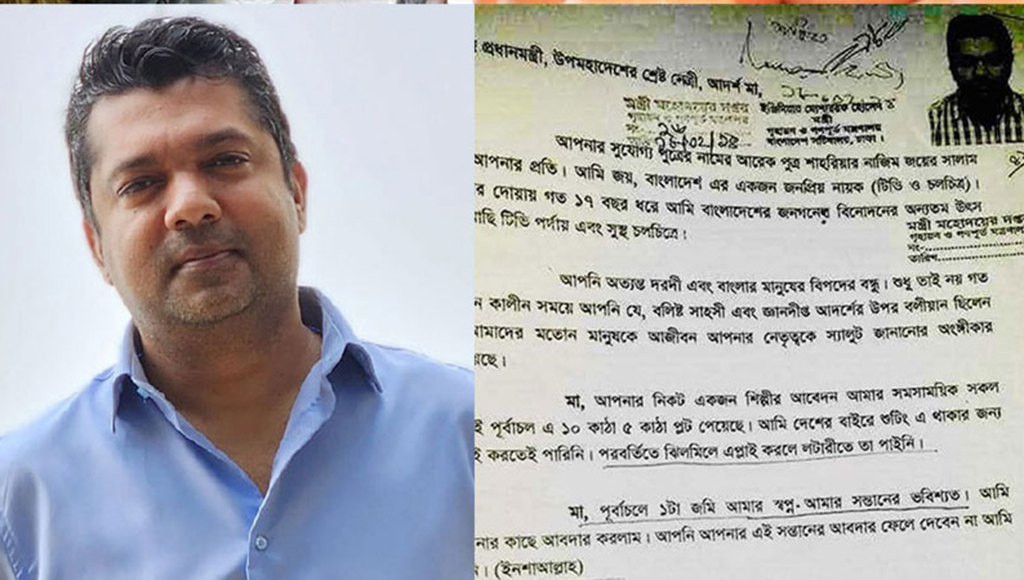 প্রধানমন্ত্রী, উপমহাদেশের শ্রেষ্ট নেত্রী, আদর্শ মা,
মন্ত্রী মহোদয়ের দপ্তর
গৃহায়ন ও গণপূর্ত মন্ত্রণালয়
ইঞ্জিনিয়ার মোশাররফ হোসেন
মন্ত্রী
গৃহায়ন ও গণপূর্ত মন্ত্রণালয়
আপনার সুযোগ্য পুত্রের নামের আরেক পুত্র শাহরিয়ার নাজিম জয়ের সালাম
আপনার প্রতি। আমি জয়, বাংলাদেশ এর একজন জনপ্রিয় নায়ক (টিভি ও চলচিত্র)।
র দোয়ায় গত ১৭ বছর ধরে আমি বাংলাদেশের জনগনের বিনোদনের অন্যতম উৎস
াছি টিভি পর্দায় এবং সুস্থ চলচিত্রে।
মন্ত্রী মহোদয়ের দপ্ত
গৃহায়ন ও গণপূর্ত মন্ত্রণাল
নং-
তারিখ
আপনি অত্যন্ত দরদী এবং বাংলার মানুষের বিপদের বন্ধু। শুধু তাই নয় গত
ন কালীন সময়ে আপনি যে, বলিষ্ট সাহসী এবং জ্ঞানদীপ্ত আদর্শের উপর বলীয়ান ছিলেন
মাদের মতোন মানুষকে আজীবন আপনার নেতৃত্বকে স্যালুট জানানোর অংঙ্গীকার
য়ছে।
মা, আপনার নিকট একজন শিল্পীর আবেদন আমার সমসাময়িক সকল
ই পূর্বাচল এ ১০ কাঠা ৫ কাঠা প্লট পেয়েছে। আমি দেশের বাইরে শুটিং এ থাকার জন্য
ই করতেই পারিনি। পরবর্তিতে ঝিলমিলে এপ্লাই করলে লটারীতে তা পাইনি।
মা, পূর্বাচলে ১টা জমি আমার স্বপ্ন-আমার সন্তানের ভবিশ্যত। আমি
নার কাছে আবদার করলাম। আপনি আপনার এই সন্তানের আবদার ফেলে দেবেন না আমি
ন। (ইনশাআল্লাহ)